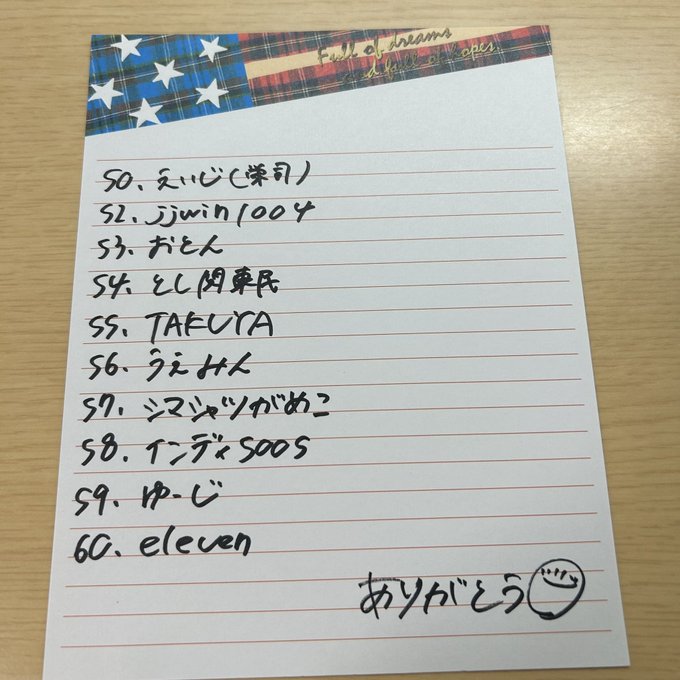 Full of dreams
and full of hopes.
50. えいじ(栄司)
52. jjwin1004
53. おとん
54. とし関東民
55. TAKUYA
56. うえみん
57. シマシャツがめこ
58. インディ500S
59. ゆーじ
60. eleven
ありがとう